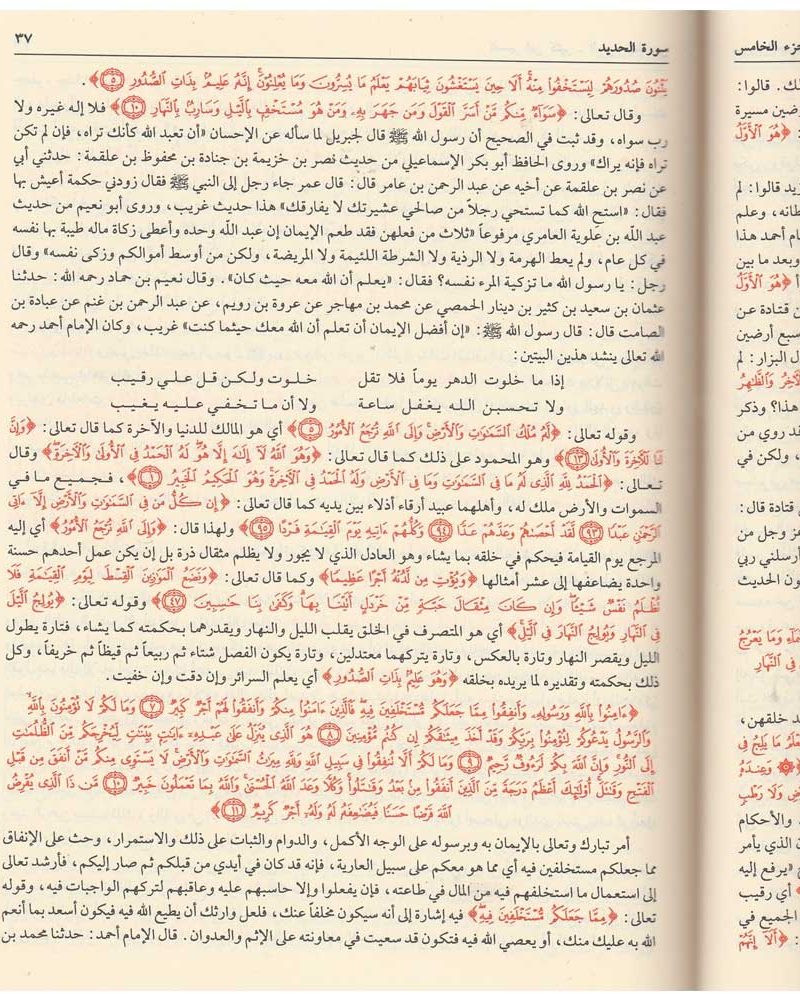 سورة الحديد ٣٧
يَثْنُونَ صُدُورَهُمْ لِيَسْتَخْفُوا مِنْهُ أَلَا حِينَ يَسْتَغْشُونَ ثِيَابَهُمْ يَعْلَمُ مَا يُسِرُّونَ وَمَا يُعْلِنُونَ إِنَّهُ عَلِيمٌ بِذَاتِ الصُّدُورِ ﴿٥﴾.
وقال تعالى: ﴿سَوَاءٌ مِنْكُمْ مَنْ أَسَرَّ الْقَوْلَ وَمَنْ جَهَرَ بِهِ وَمَنْ هُوَ مُسْتَخْفٍ بِاللَّيْلِ وَسَارِبٌ بِالنَّهَارِ ﴿١٠﴾﴾ فلا إله غيره ولا
رب سواه، وقد ثبت في الصحيح أن رسول الله ﷺ قال لجبريل لما سأله عن الإحسان «أن تعبد الله كأنك تراه، فإن لم تكن
تراه فإنه يراك» وروى الحافظ أبو بكر الإسماعيلي من حديث نصر بن خزيمة بن جنادة بن محفوظ بن علقمة: حدثني أبي
عن نصر بن علقمة عن أخيه عن عبد الرحمن بن عامر قال: قال عمر جاء رجل إلى النبي ﷺ فقال زودني حكمة أعيش بها
فقال: «استح الله كما تستحي رجلاً من صالحي عشيرتك لا يفارقك» هذا حديث غريب، وروى أبو نعيم من حديث
عبد الله بن علوية العامري مرفوعاً «ثلاث من فعلهن فقد طعم الإيمان إن عبد الله وحده وأعطى زكاة ماله طيبة بها نفسه
في كل عام، ولم يعط الهرمة ولا الرذية ولا الشرطة اللئيمة ولا المريضة، ولكن من أوسط أموالكم وزكى نفسه» وقال
رجل: يا رسول الله ما تزكية المرء نفسه؟ فقال: «يعلم أن الله معه حيث كان». وقال نعيم بن حماد رحمه الله: حدثنا
عثمان بن سعيد بن كثير بن دينار الحمصي عن محمد بن مهاجر عن عروة بن رويم، عن عبد الرحمن بن غنم عن عبادة بن
الصامت قال: قال رسول الله ﷺ: «إن أفضل الإيمان أن تعلم أن الله معك حيثما كنت» غريب، وكان الإمام أحمد رحمه
الله تعالى ينشد هذين البيتين:
إذا ما خلوت الدهر يوماً فلا تقل خلوت ولكن قل علي رقيب
ولا تحسبن الله يغفل ساعة ولا أن ما تخفي عليه يغيب
وقوله تعالى: ﴿لَهُ مُلْكُ السَّمَاوَاتِ وَالْأَرْضِ وَإِلَى اللَّهِ تُرْجَعُ الْأُمُورُ ﴿٥﴾﴾ أي هو المالك للدنيا والآخرة كما قال تعالى: ﴿وَإِنَّ
لَنَا لَلْآخِرَةَ وَالْأُولَى ﴿١٣﴾﴾ وهو المحمود على ذلك كما قال تعالى: ﴿وَهُوَ اللَّهُ لَا إِلَهَ إِلَّا هُوَ لَهُ الْحَمْدُ فِي الْأُولَى وَالْآخِرَةِ﴾ وقال
تعالى: ﴿الْحَمْدُ لِلَّهِ الَّذِي لَهُ مَا فِي السَّمَاوَاتِ وَمَا فِي الْأَرْضِ وَلَهُ الْحَمْدُ فِي الْآخِرَةِ وَهُوَ الْحَكِيمُ الْخَبِيرُ ﴿١﴾﴾، فجميع ما في
السموات والأرض ملك له، وأهلهما عبيد أرقاء أذلاء بين يديه كما قال تعالى: ﴿إِنْ كُلُّ مَنْ فِي السَّمَاوَاتِ وَالْأَرْضِ إِلَّا آتِي
الرَّحْمَنِ عَبْدًا ﴿٩٣﴾ لَقَدْ أَحْصَاهُمْ وَعَدَّهُمْ عَدًّا ﴿٩٤﴾ وَكُلُّهُمْ آتِيهِ يَوْمَ الْقِيَامَةِ فَرْدًا ﴿٩٥﴾﴾ ولهذا قال: ﴿وَإِلَى اللَّهِ تُرْجَعُ الْأُمُورُ﴾ أي إليه
المرجع يوم القيامة فيحكم في خلقه بما يشاء وهو العادل الذي لا يجور ولا يظلم مثقال ذرة بل إن يكن عمل أحدهم حسنة
واحدة يضاعفها إلى عشر أمثالها ﴿وَيُؤْتِ مِنْ لَدُنْهُ أَجْرًا عَظِيمًا﴾ وكما قال تعالى: ﴿وَنَضَعُ الْمَوَازِينَ الْقِسْطَ لِيَوْمِ الْقِيَامَةِ فَلَا
تُظْلَمُ نَفْسٌ شَيْئًا وَإِنْ كَانَ مِثْقَالَ حَبَّةٍ مِنْ خَرْدَلٍ أَتَيْنَا بِهَا وَكَفَى بِنَا حَاسِبِينَ ﴿٤٧﴾﴾ وقوله تعالى: ﴿يُولِجُ اللَّيْلَ
فِي النَّهَارِ وَيُولِجُ النَّهَارَ فِي اللَّيْلِ﴾ أي هو المتصرف في الخلق يقلب الليل والنهار ويقدرهما بحكمته كما يشاء، فتارة يطول
الليل ويقصر النهار وتارة بالعكس، وتارة يتركهما معتدلين، وتارة يكون الفصل شتاء ثم ربيعاً ثم قيظاً ثم خريفاً، وكل
ذلك بحكمته وتقديره لما يريده بخلقه ﴿وَهُوَ عَلِيمٌ بِذَاتِ الصُّدُورِ﴾ أي يعلم السرائر وإن دقت وإن خفيت.
﴿آمِنُوا بِاللَّهِ وَرَسُولِهِ وَأَنْفِقُوا مِمَّا جَعَلَكُمْ مُسْتَخْلَفِينَ فِيهِ فَالَّذِينَ آمَنُوا مِنْكُمْ وَأَنْفَقُوا لَهُمْ أَجْرٌ كَبِيرٌ ﴿٧﴾ وَمَا لَكُمْ لَا تُؤْمِنُونَ بِاللَّهِ
وَالرَّسُولُ يَدْعُوكُمْ لِتُؤْمِنُوا بِرَبِّكُمْ وَقَدْ أَخَذَ مِيثَاقَكُمْ إِنْ كُنْتُمْ مُؤْمِنِينَ ﴿٨﴾ هُوَ الَّذِي يُنَزِّلُ عَلَى عَبْدِهِ آيَاتٍ بَيِّنَاتٍ لِيُخْرِجَكُمْ مِنَ الظُّلُمَاتِ
إِلَى النُّورِ وَإِنَّ اللَّهَ بِكُمْ لَرَءُوفٌ رَحِيمٌ ﴿٩﴾ وَمَا لَكُمْ أَلَّا تُنْفِقُوا فِي سَبِيلِ اللَّهِ وَلِلَّهِ مِيرَاثُ السَّمَاوَاتِ وَالْأَرْضِ لَا يَسْتَوِي مِنْكُمْ مَنْ أَنْفَقَ مِنْ قَبْلِ
الْفَتْحِ وَقَاتَلَ أُولَئِكَ أَعْظَمُ دَرَجَةً مِنَ الَّذِينَ أَنْفَقُوا مِنْ بَعْدُ وَقَاتَلُوا وَكُلًّا وَعَدَ اللَّهُ الْحُسْنَى وَاللَّهُ بِمَا تَعْمَلُونَ خَبِيرٌ ﴿١٠﴾ مَنْ ذَا الَّذِي يُقْرِضُ
اللَّهَ قَرْضًا حَسَنًا فَيُضَاعِفَهُ لَهُ وَلَهُ أَجْرٌ كَرِيمٌ ﴿١١﴾﴾
أمر تبارك وتعالى بالإيمان به وبرسوله على الوجه الأكمل، والدوام والثبات على ذلك والاستمرار، وحث على الإنفاق
مما جعلكم مستخلفين فيه أي مما هو معكم على سبيل العارية، فإنه قد كان في أيدي من قبلكم ثم صار إليكم، فأرشد تعالى
إلى استعمال ما استخلفهم فيه من المال في طاعته، فإن يفعلوا وإلا حاسبهم عليه وعاقبهم لتركهم الواجبات فيه، وقوله
تعالى: ﴿مِمَّا جَعَلَكُمْ مُسْتَخْلَفِينَ فِيهِ﴾ فيه إشارة إلى أنه سيكون مخلفاً عنك، فلعل وارثك أن يطيع الله فيه فيكون أسعد بما أنعم
الله به عليك منك، أو يعصي الله فيه فتكون قد سعيت في معاونته على الإثم والعدوان. قال الإمام أحمد: حدثنا محمد بن